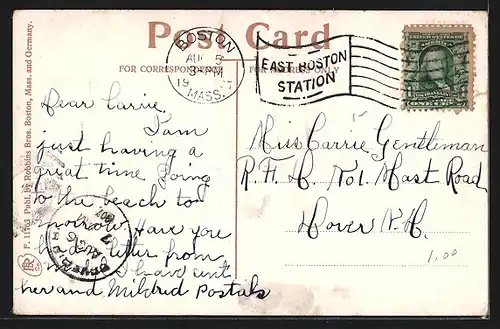 Post Card
FOR CORRESPONDENCE
FOR ADDRESS ONLY
BOSTON
AUG 5
3-PM
19
MASS.
EAST BOSTON
STATION
UNITED STATES OF AMERICA
ONE CENT
P. 11763 Publ. by Robbins Bros. Boston, Mass. and Germany.
Dear Carrie,
I am
just having a
great time. Going
to the beach to
morrow. Have you
letter from
I have sent
her and Mildred Postals
Miss Carrie Gentleman
R. F. D. No 1. Mast Road
Dover N. H.
1.00
AUG 6